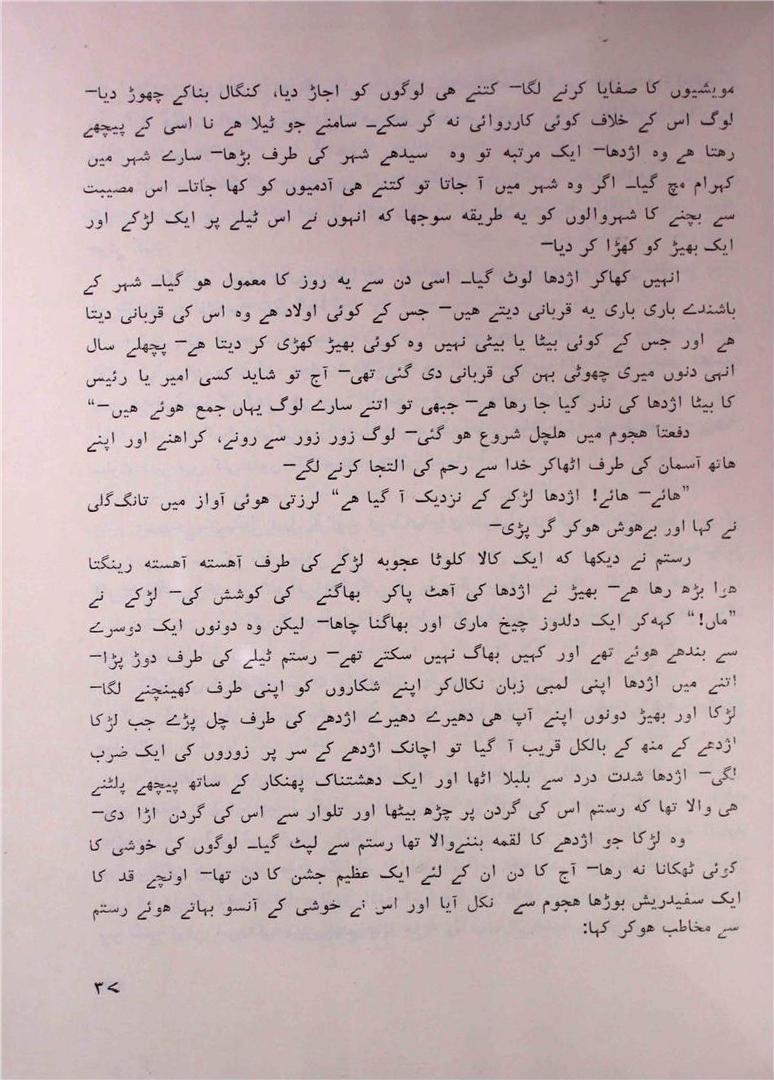 مویشیوں کا صفایا کرنے لگا— کتنے ھی لوگوں کو اجاڑ دیا، کنگال بناکے چھوڑ دیا—
لوگ اس کے خلاف کوئی کارروائی نہ کر سکے— سامنے جو ٹیلا ھے نا اسی کے پیچھے
رھتا ھے وہ اژدھا— ایک مرتبہ تو وہ سیدھے شہر کی طرف بڑھا— سارے شہر میں
کہرام مچ گیا— اگر وہ شہر میں آ جاتا تو کتنے ھی آدمیوں کو کھا جاتا— اس مصیبت
سے بچنے کا شہروالوں کو یہ طریقہ سوجھا کہ انہوں نے اس ٹیلے پر ایک لڑکے اور
ایک بھیڑ کو کھڑا کر دیا—
انہیں کھاکر اژدھا لوٹ گیا— اسی دن سے یہ روز کا معمول ھو گیا— شہر کے
باشندے باری باری یہ قربانی دیتے ھیں— جس کے کوئی اولاد ھے وہ اس کی قربانی دیتا
ھے اور جس کے کوئی بیٹا یا بیٹی نہیں وہ کوئی بھیڑ کھڑی کر دیتا ھے— پچھلے سال
انہی دنوں میری چھوٹی بہن کی قربانی دی گئی تھی— آج تو شاید کسی امیر یا رئیس
کا بیٹا اژدھا کی نذر کیا جا رھا ھے— جبھی تو اتنے سارے لوگ یہاں جمع ھوئے ھیں—“
دفعتاً ھجوم میں ھلچل شروع ھو گئی— لوگ زور زور سے رونے، کراھنے اور اپنے
ھاتھ آسمان کی طرف اٹھاکر خدا سے رحم کی التجا کرنے لگے—
”ھائے— ھائے! اژدھا لڑکے کے نزدیک آ گیا ھے“ لرزتی ھوئی آواز میں تانگ‌گلی
نے کہا اور بےھوش ھوکر گر پڑی—
رستم نے دیکھا کہ ایک کالا کلوٹا عجوبہ لڑکے کی طرف آھستہ آھستہ رینگتا
ھوا بڑھ رھا ھے— بھیڑ نے اژدھا کی آھٹ پاکر بھاگنے کی کوشش کی— لڑکے نے
”ماں!“ کہہ‌کر ایک دلدوز چیخ ماری اور بھاگنا چاھا— لیکن وہ دونوں ایک دوسرے
سے بندھے ھوئے تھے اور کہیں بھاگ نہیں سکتے تھے— رستم ٹیلے کی طرف دوڑ پڑا—
اتنے میں اژدھا اپنی لمبی زبان نکال‌کر اپنے شکاروں کو اپنی طرف کھینچنے لگا—
لڑکا اور بھیڑ دونوں اپنے آپ ھی دھیرے دھیرے اژدھے کی طرف چل پڑے جب لڑکا
اژدھے کے منھ کے بالکل قریب آ گیا تو اچانک اژدھے کے سر پر زوروں کی ایک ضرب
لگی— اژدھا شدت درد سے بلبلا اٹھا اور ایک دھشتناک پھنکار کے ساتھ پیچھے پلٹنے
ھی والا تھا کہ رستم اس کی گردن پر چڑھ بیٹھا اور تلوار سے اس کی گردن اڑا دی—
وہ لڑکا جو اژدھے کا لقمہ بننےوالا تھا رستم سے لپٹ گیا— لوگوں کی خوشی کا
کوئی ٹھکانا نہ رھا— آج کا دن ان کے لئے ایک عظیم جشن کا دن تھا— اونچے قد کا
ایک سفیدریش بوڑھا ھجوم سے نکل آیا اور اس نے خوشی کے آنسو بہاتے ھوئے رستم
سے مخاطب ھوکر کہا:
۳۷